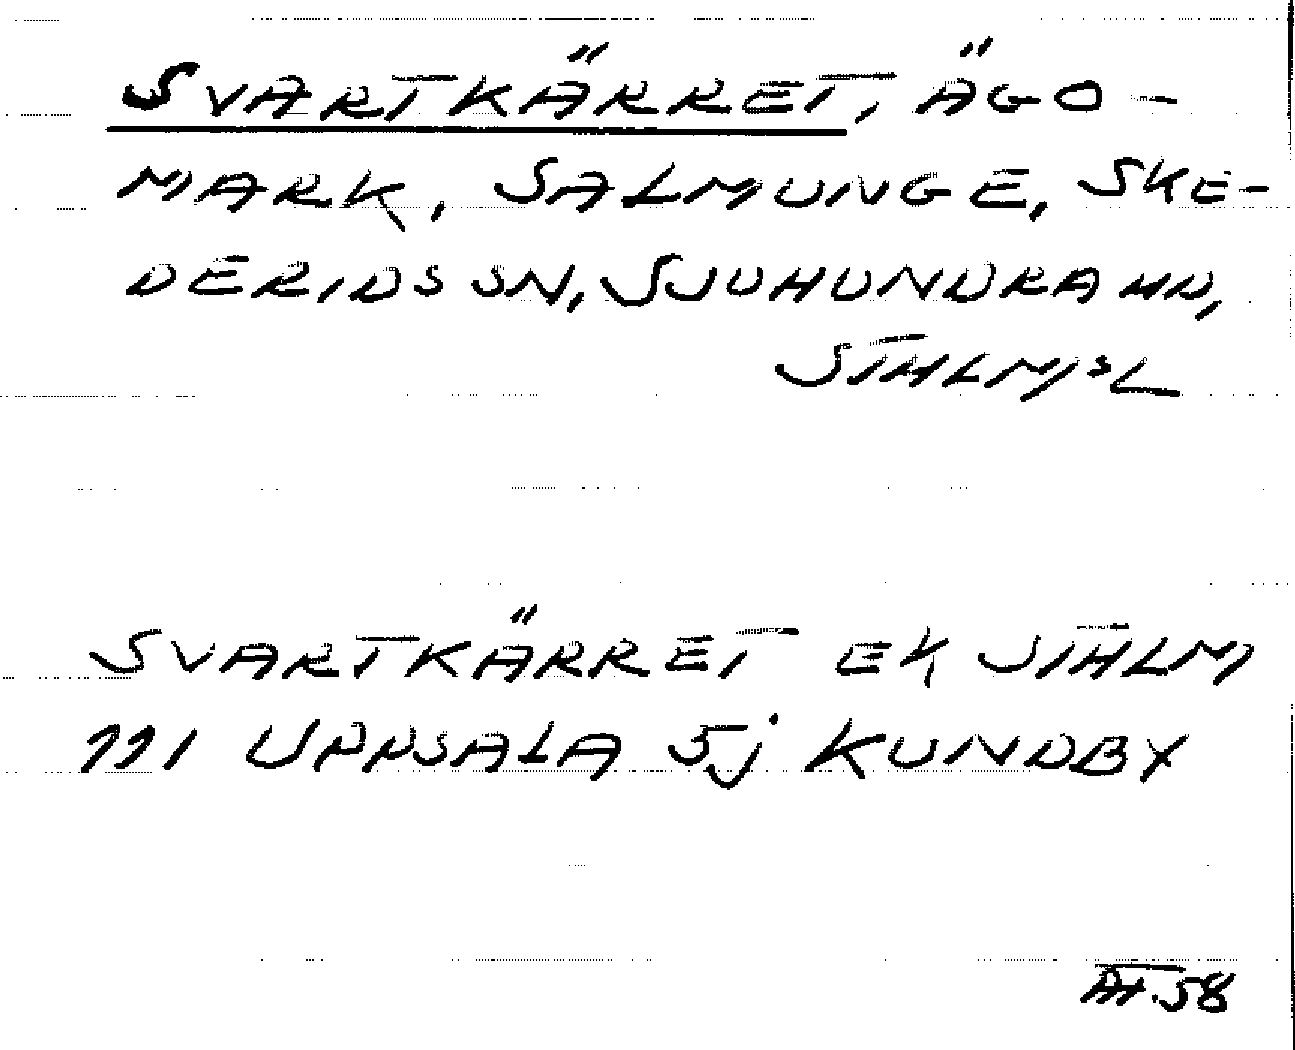 SVARTKÄRRET, ÄGO-
MARK, SALMUNGE, SKE-
DERIDS SN, SJUHUNDRA HD,
STHLMSL
SVARTKÄRRET EK STHLM
111 UPPSALA 5j KUNDBY
58